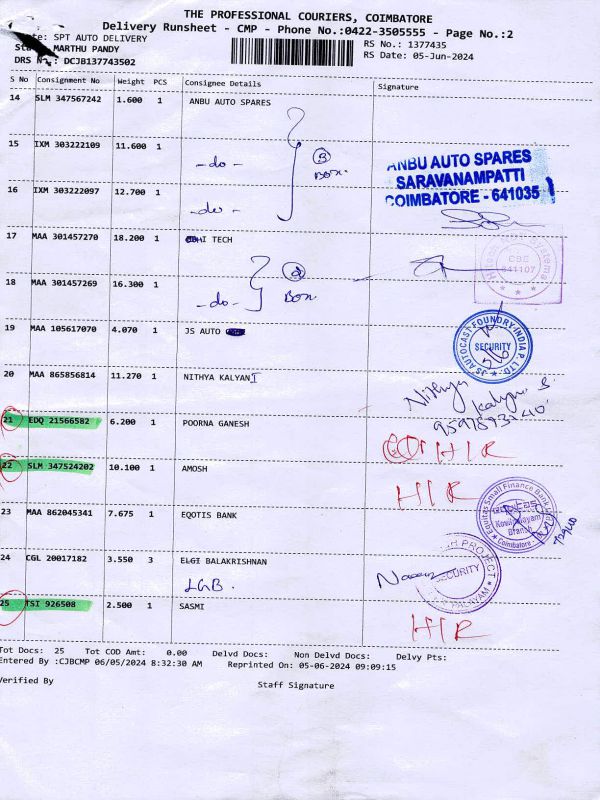 THE PROFESSIONAL COURIERS, COIMBATORE
Delivery Runsheet - CMP - Phone No.:0422-3505555 - Page No.:2
te: SPT AUTO DELIVERY
RS No.: 1377435
MARTHU PANDY
RS Date: 05-Jun-2024
DRS No.: DCJB137743502
S No Consignment No Weight PCS Consignee Details Signature
14 SLM 347567242 1.600 1 ANBU AUTO SPARES
15 IXM 303222109 11.600 1 -do- 3 BOX.
ANBU AUTO SPARES
SARAVANAMPATTI
COIMBATORE - 641035
16 IXM 303222097 12.700 1 -do-
17 MAA 301457270 18.200 1 HI TECH
CBE
641107
18 MAA 301457269 16.300 1 -do- 2 BOX.
19 MAA 105617070 4.070 1 JS AUTO
JS AUTOCAST FOUNDRY INDIA P. LTD.
SECURITY
20 MAA 865856814 11.270 1 NITHYA KALYANI
Nithya Kalyani S
21 EDQ 21566582 6.200 1 POORNA GANESH HIR
22 SLM 347524202 10.100 1 AMOSH HIR
23 MAA 862045341 7.675 1 EQOTIS BANK
Equitas Small Finance Bank
Branch
Coimbatore
24 CGL 20017182 3.550 3 ELGI BALAKRISHNAN
LGB.
PROJECT
SECURITY
PALAYAM
25 TSI 926508 2.500 1 SASMI HIR
Tot Docs: 25 Tot COD Amt: 0.00 Delvd Docs: Non Delvd Docs: Delvy Pts:
Entered By :CJBCMP 06/05/2024 8:32:30 AM Reprinted On: 05-06-2024 09:09:15
Verified By
Staff Signature